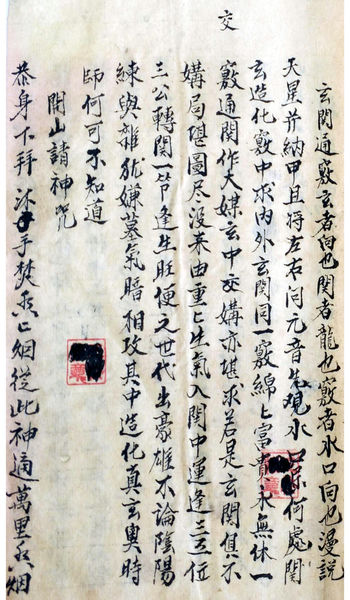 交
玄関通竅玄者向也関者龍也竅者水口向也漫說
天星并納甲且将左右问元音先观水口何處関
玄造化竅中求內外玄関同一竅綿々富貴永無休一
竅通関作大媒玄中交媾亦堪求若是玄関俱不
媾局堪圖尽没来由重々生氣入関中運逢三五位
三公轉関一节逢生旺便之世代出豪雄不論陰陽
練與雜犹嫌墓氣暗相攻其中造化真玄奧時
師何可不知道
開山請神咒
恭身下拜 沐手焚香々烟從此神通萬里香烟